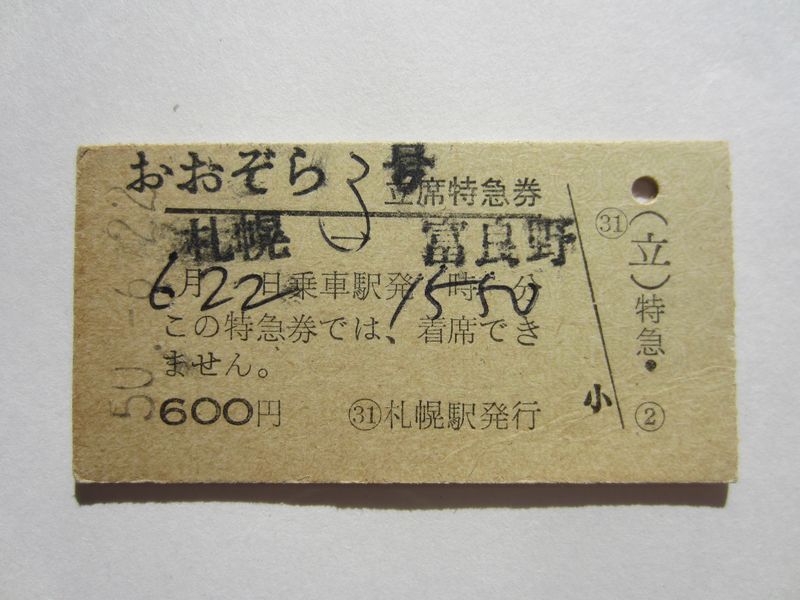 おおぞら3号
立席特急券
札幌→富良野
6月22日乗車駅発15時50分
この特急券では、着席でき
ません。
600円 ㉛札幌駅発行
小
㉛(立)特急・②
50.-6.22